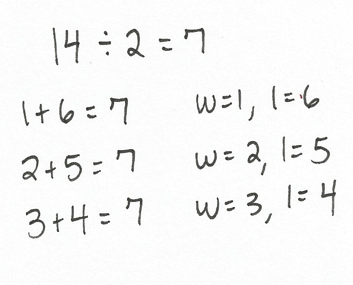 14 ÷ 2 = 7
1+6=7 w=1, l=6
2+5=7 w=2, l=5
3+4=7 w=3, l=4